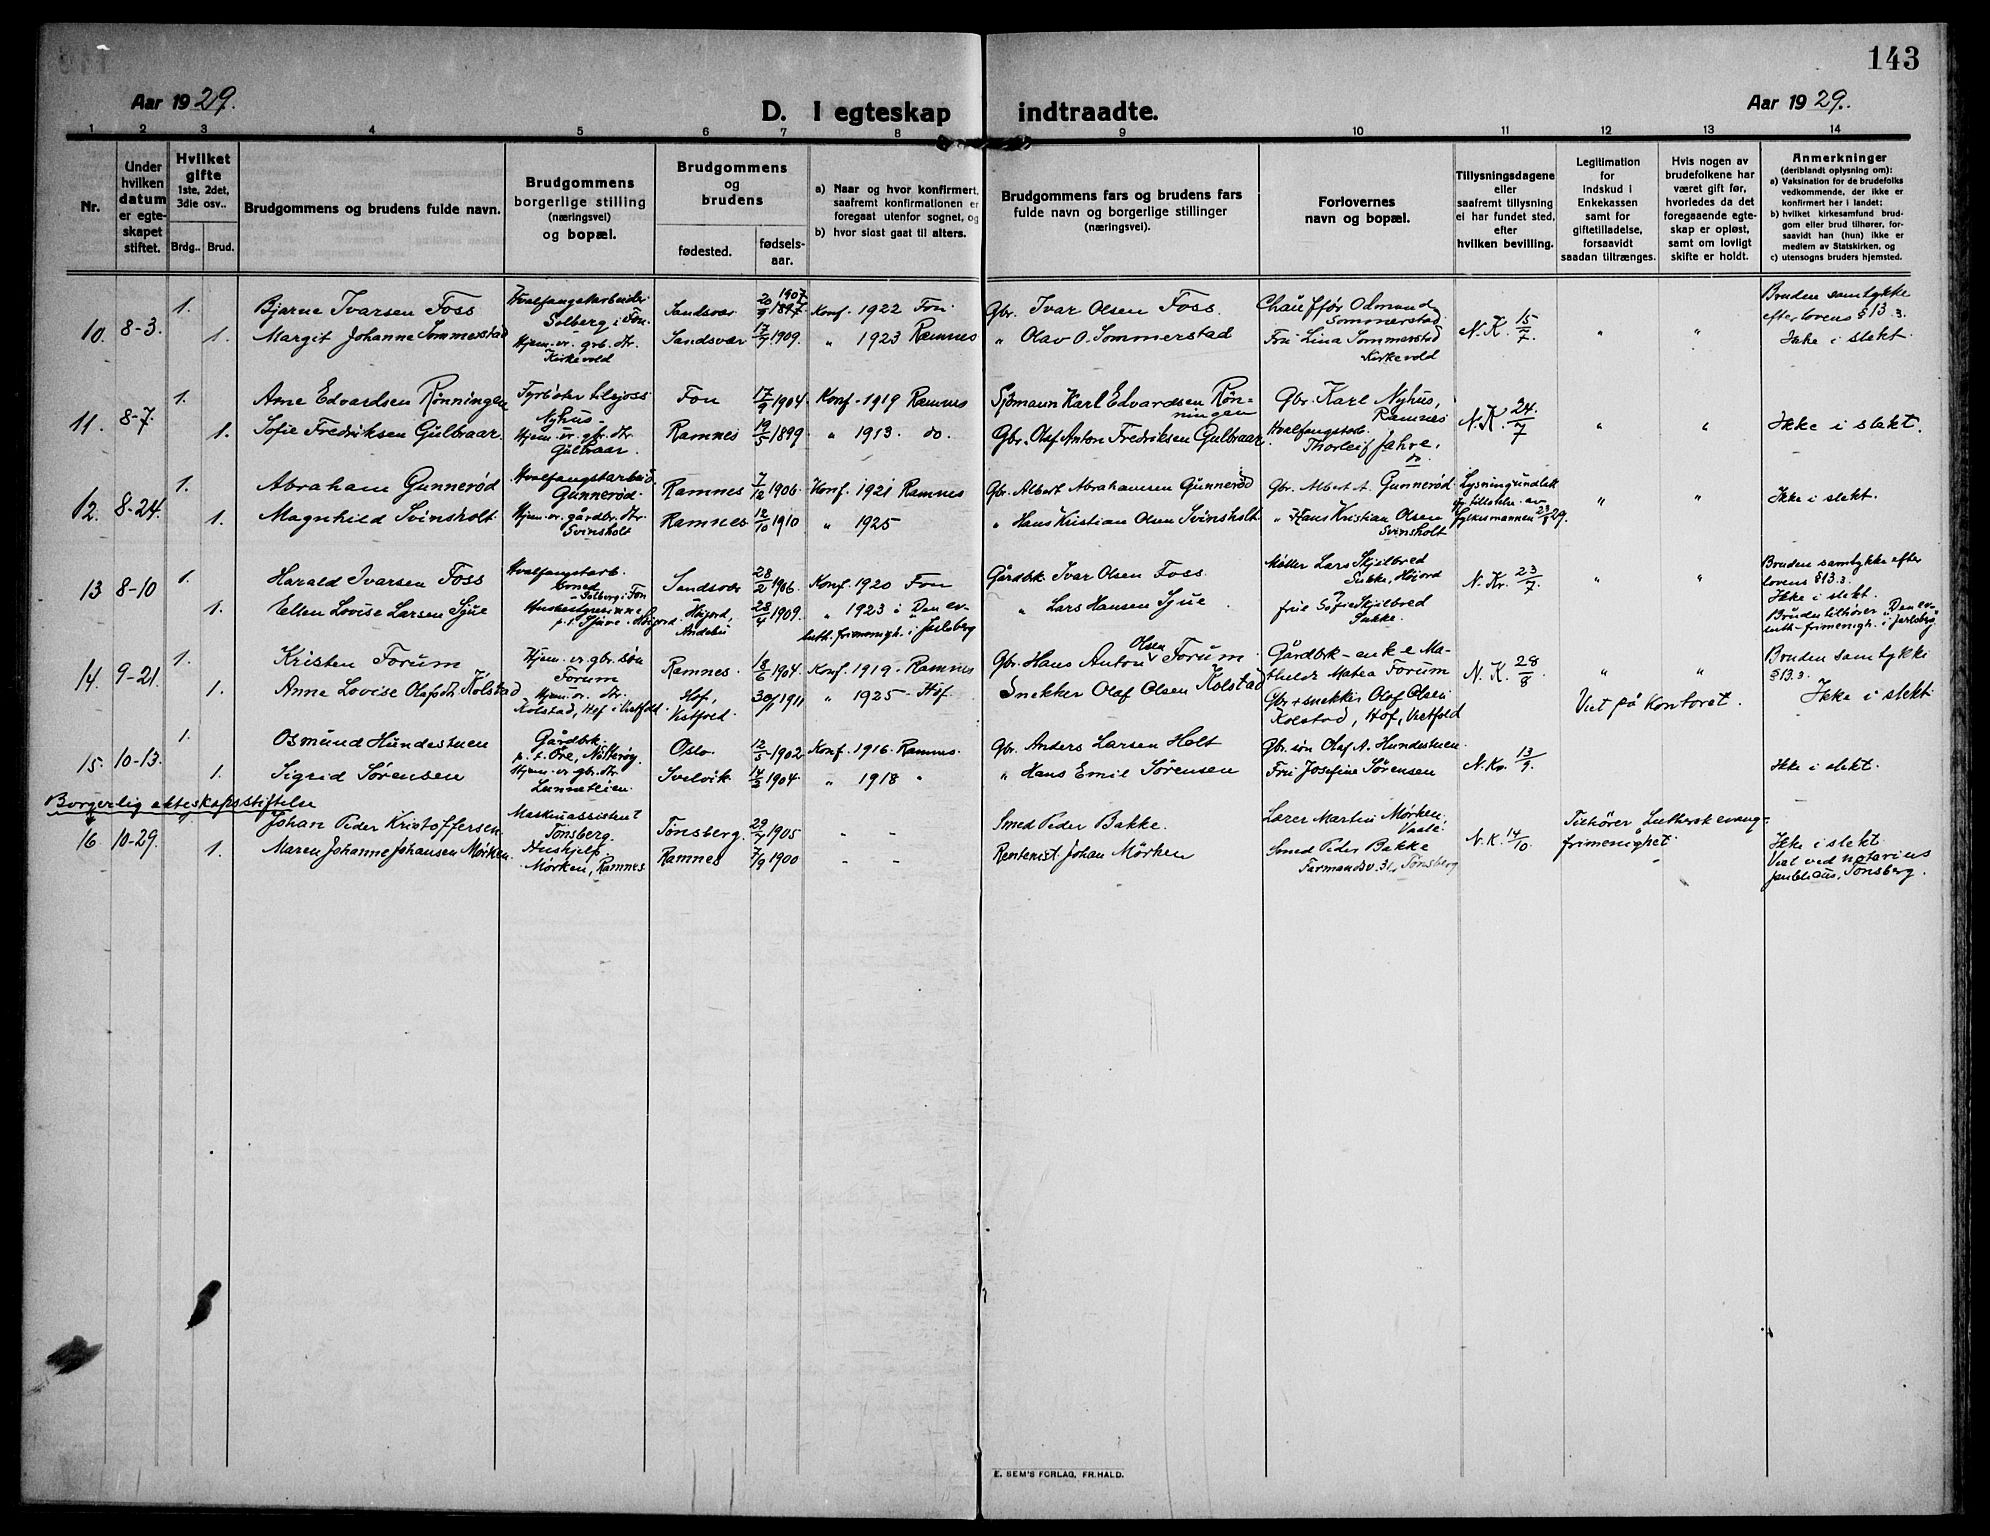 143
Aar 1929.
D. I egteskap indtraadte.
Aar 1929.
1 2 3 4 5 6 7 8 9 10 11 12 13 14
Nr.
Under hvilken datum er egteskapet stiftet.
Hvilket gifte 1ste, 2det, 3die osv..
Brdg.. Brud.
Brudgommens og brudens fulde navn.
Brudgommens borgerlige stilling (næringsvei) og bopæl.
Brudgommens og brudens
fødested. fødselsaar.
a) Naar og hvor konfirmert, saafremt konfirmationen er foregaat utenfor sognet, og
b) hvor sidst gaat til alters.
Brudgommens fars og brudens fars fulde navn og borgerlige stillinger (næringsvei).
Forlovernes navn og bopæl.
Tillysningsdagene eller saafremt tillysning ei har fundet sted, efter hvilken bevilling.
Legitimation for indskud i Enkekassen samt for giftetilladelse, forsaavidt saadan tiltrænges.
Hvis nogen av brudefolkene har været gift før, hvorledes da det foregaaende egteskap er opløst, samt om lovligt skifte er holdt.
Anmerkninger (deriblandt oplysning om):
a) Vaksination for de brudefolks vedkommende, der ikke er konfirmert her i landet;
b) hvilket kirkesamfund brudgom eller brud tilhører, forsaavidt han (hun) ikke er medlem av Statskirken, og
c) utensogns bruders hjemsted.
10. 8-3. 1. Bjarne Ivarsen Foss Hvalfangstarbeider Solberg i Fon. Sandsvær 20/9 1897 1907 Konf. 1922 Fon Gbr. Ivar Olsen Foss. Chauffør Odmund Sommerstad N. K. 15/7 " " Bruden samtykke efter lovens § 13.3.
1. Margit Johanne Sommerstad Hjem. v. grb. dtr. Kirkevold Sandsvær 17/7 1909. " 1923 Ramnes " Olav O. Sommerstad Fru Lina Sommerstad Kirkevold Ikke i slekt.
11. 8-7. 1. Arne Edvardsen Rønningen Fyrbøter tilsjøss Nyhus Fon 17/9 1904. Konf. 1919 Ramnes Sjømann Karl Edvardsen Rønningen Gbr. Karl Nyhus, Ramnes N. K. 24/7 " " Ikke i slekt.
1. Sofie Fredriksen Gulbraar. Hjem. v. gbr. dtr. Gulbraar. Ramnes 19/5 1899 " 1913. do. Gbr. Olaf Anton Fredriksen Gulbraar. Hvalfangstarb. Thorleif Jahre, do.
12. 8-24. 1. Abraham Gunnerød Hvalfangstarbeid. Gunnerød. Ramnes 7/12 1906. Konf. 1921 Ramnes Gbr. Albert Abrahamsen Gunnerød Gbr. Albert A. Gunnerød Lysning undlatt tillatelse av fylkesmannen 23/8 29. " " Ikke i slekt.
1. Magnhild Svinsholt. Hjem. v. gårdbr. dtr. Svinsholt Ramnes 12/10 1910 " 1925 " Hans Kristian Olsen Svinsholt. " Hans Kristian Olsen Svinsholt
13 8-10 1. Harald Ivarsen Foss Hvalfangstarb. Solberg i Fon Sandsvær 28/2 1906 Konf. 1920 Fon Gårdbr. Ivar Olsen Foss. Møller Lars Skjelbred Sukke, Høiord N. K. 23/7 " " Bruden samtykke efter lovens § 13.3.
1. Ellen Lovise Larsen Sjue Husbestyrerinne p.t. Høijord, Andebu 28/4 1909. " 1923 i Den ev. luth. frimenigh. i Jarlsberg " Lars Hansen Sjue frue Sofie Skjelbred Sukke. Ikke i slekt. Bruden tilhører "Den ev. luth. frimenigh. i Jarlsberg"
14. 9-21. 1. Kristen Forum Hjem. v. gbr. søn Forum Ramnes 18/6 1904. Konf. 1919. Ramnes Gbr. Hans Anton Olsen Forum Gårdbr.-enke Mathilde Matea Forum N. K. 28/8 " " Bruden samtykke § 13.3
1. Anne Lovise Olafsdtr. Kolstad Hjem. v. dtr. Kolstad, Hof i Vestfold. Hof, Vestfold. 30/11 1911 " 1925. Hof. Snekker Olaf Olsen Kolstad Gbr + snekker Olaf Olsen Kolstad, Hof, Vestfold Viet på kontoret. Ikke i slekt.
15. 10-13. 1. Osmund Hundestuen Gårdbr. p.t. Øre, Nøtterøy. Oslo. 12/5 1902 Konf. 1916. Ramnes. Gbr. Anders Larsen Holt Gbr. søn Olaf A. Hundestuen. N. K. 13/9. Ikke i slekt.
1. Sigrid Sørensen Hjem. v. gbr. dtr. Linneteien. Svelvik. 14/3 1904. " 1918 " " Hans Emil Sørensen Fru Josefine Sørensen
Borgerlig ekteskapsstiftelse
16 10-29. 1. Johan Peder Kristoffersen. Maskinassistent Tønsberg. Tønsberg. 29/7 1905 - - Smed Peder Bakke. Lærer Martin Mørken, Vaale. N. K. 14/10 Tilhører Luthersk evang. frimenighet. Ikke i slekt.
1. Maren Johanne Johansen Mørken. Hushjelp. Mørken, Ramnes. Ramnes 7/9 1900 - - Rentenist. Johan Mørken Smed Peder Bakke Farmandsv. 31, Tønsberg Viet ved notarius publicus, Tønsberg.
E. SEM'S FORLAG, FR.HALD.